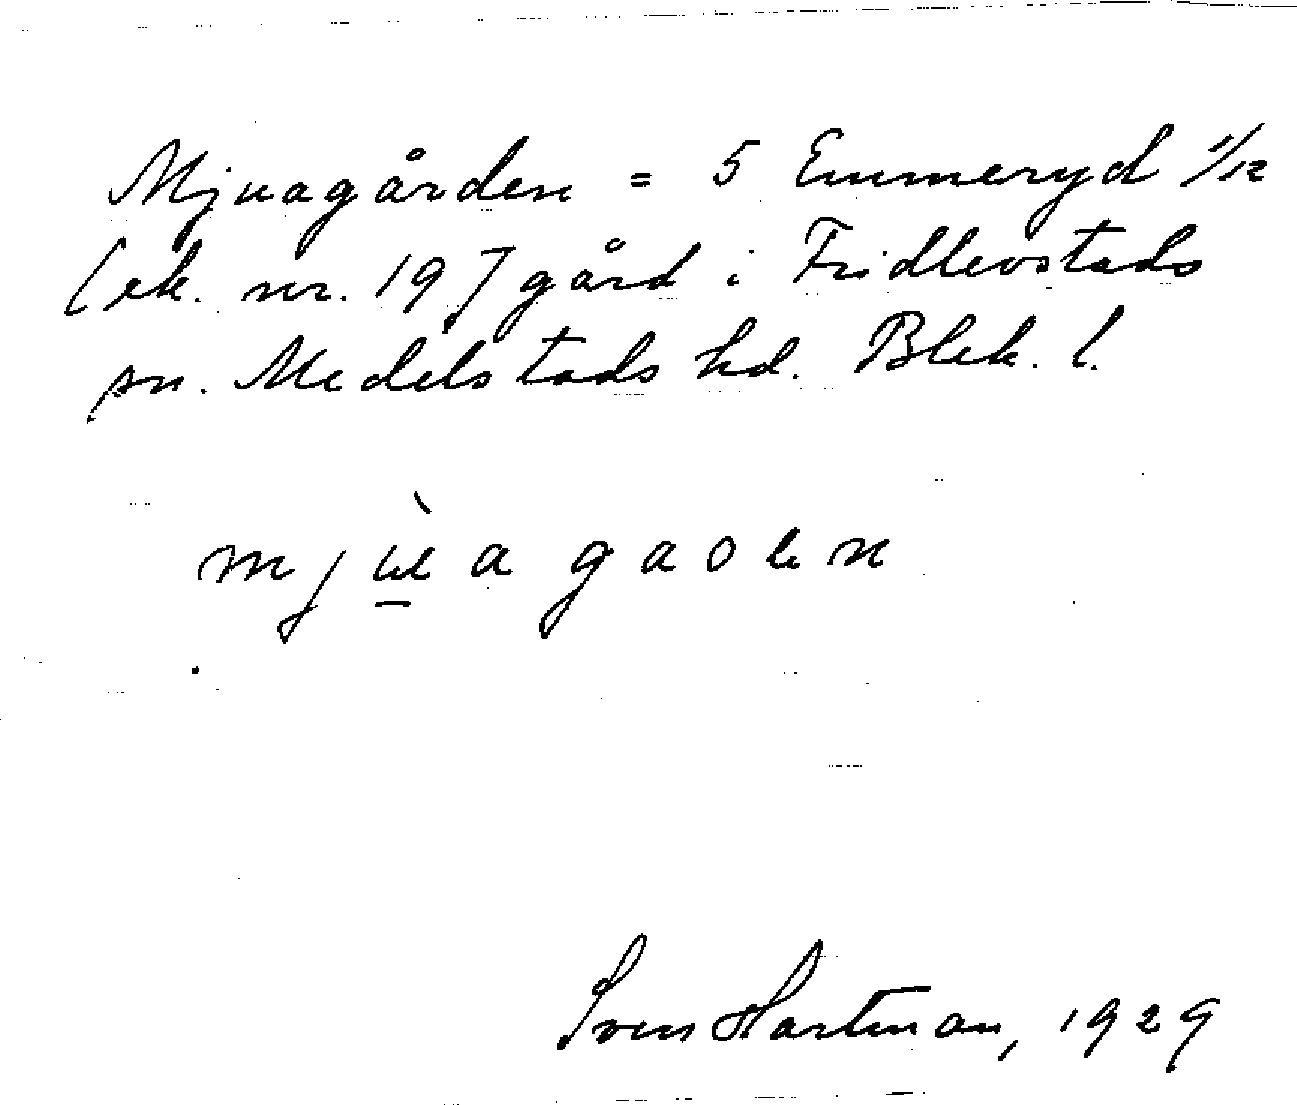 Mjuagården = 5 Emmeryd 1/12
[ek. nr. 19] gård i Fridlevstads
sn. Medelstads hd. Blek. l.
mjùa gaolen
Sven Hartman, 1929